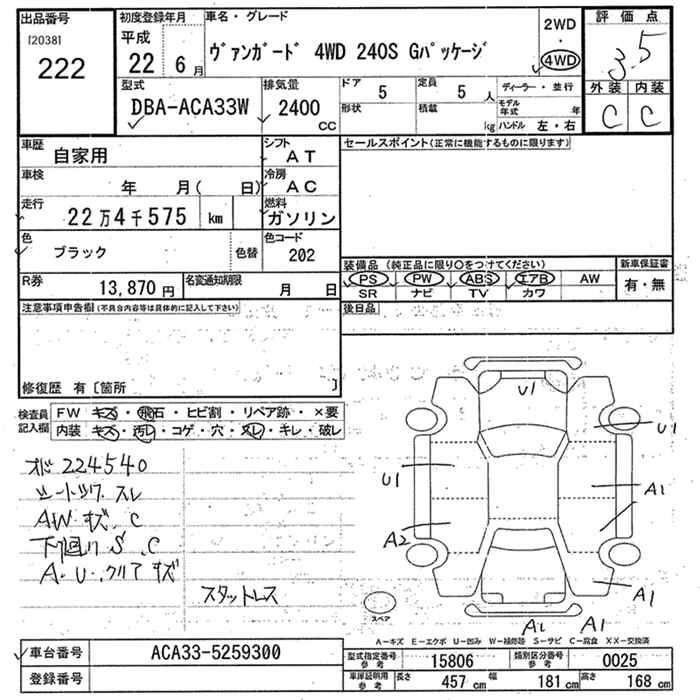 出品番号
[2038]
222
初度登録年月
平成
22 6月
車名・グレード
ヴァンガード 4WD 240S Gパッケージ
2WD
・
4WD
評価点
3.5
外装 内装
C C
型式
DBA-ACA33W
排気量
2400
CC
ドア
5
定員
5 人
形状
積載
kg
ディーラー・並行
モデル年式 年
ハンドル 左・右
車歴
自家用
シフト
AT
車検
年 月( 日)
冷房
AC
走行
22万4千575 km
燃料
ガソリン
色
ブラック
色替
色コード
202
R券
13,870円
名変通知期限
月 日
セールスポイント(正常に機能するものに限ります)
装備品(純正品に限り○をつけてください)
新車保証書
PS PW ABS エアB AW
有・無
SR ナビ TV カワ
後日品
注意事項申告欄(不具合内容等は具体的に記入して下さい)
修復歴 有〔箇所 〕
検査員記入欄
FW キズ・飛石・ヒビ割・リペア跡・×要
内装 キズ・汚レ・コゲ・穴・スレ・キレ・破レ
オド 224540
シートツワ スレ
AW キズ、C
下回り S、C
A・U・クリア キズ
スタットレス
U1
U1
U1
A1
A2
A1
A1
A1
スペア
A-キズ E-エクボ U-凹み W-補修跡 S-サビ C-腐食 XX-交換済
車台番号
ACA33-5259300
登録番号
型式指定番号 参考
15806
類別区分番号 参考
0025
車庫証明用 参考
長さ 457cm
幅 181cm
高さ 168cm